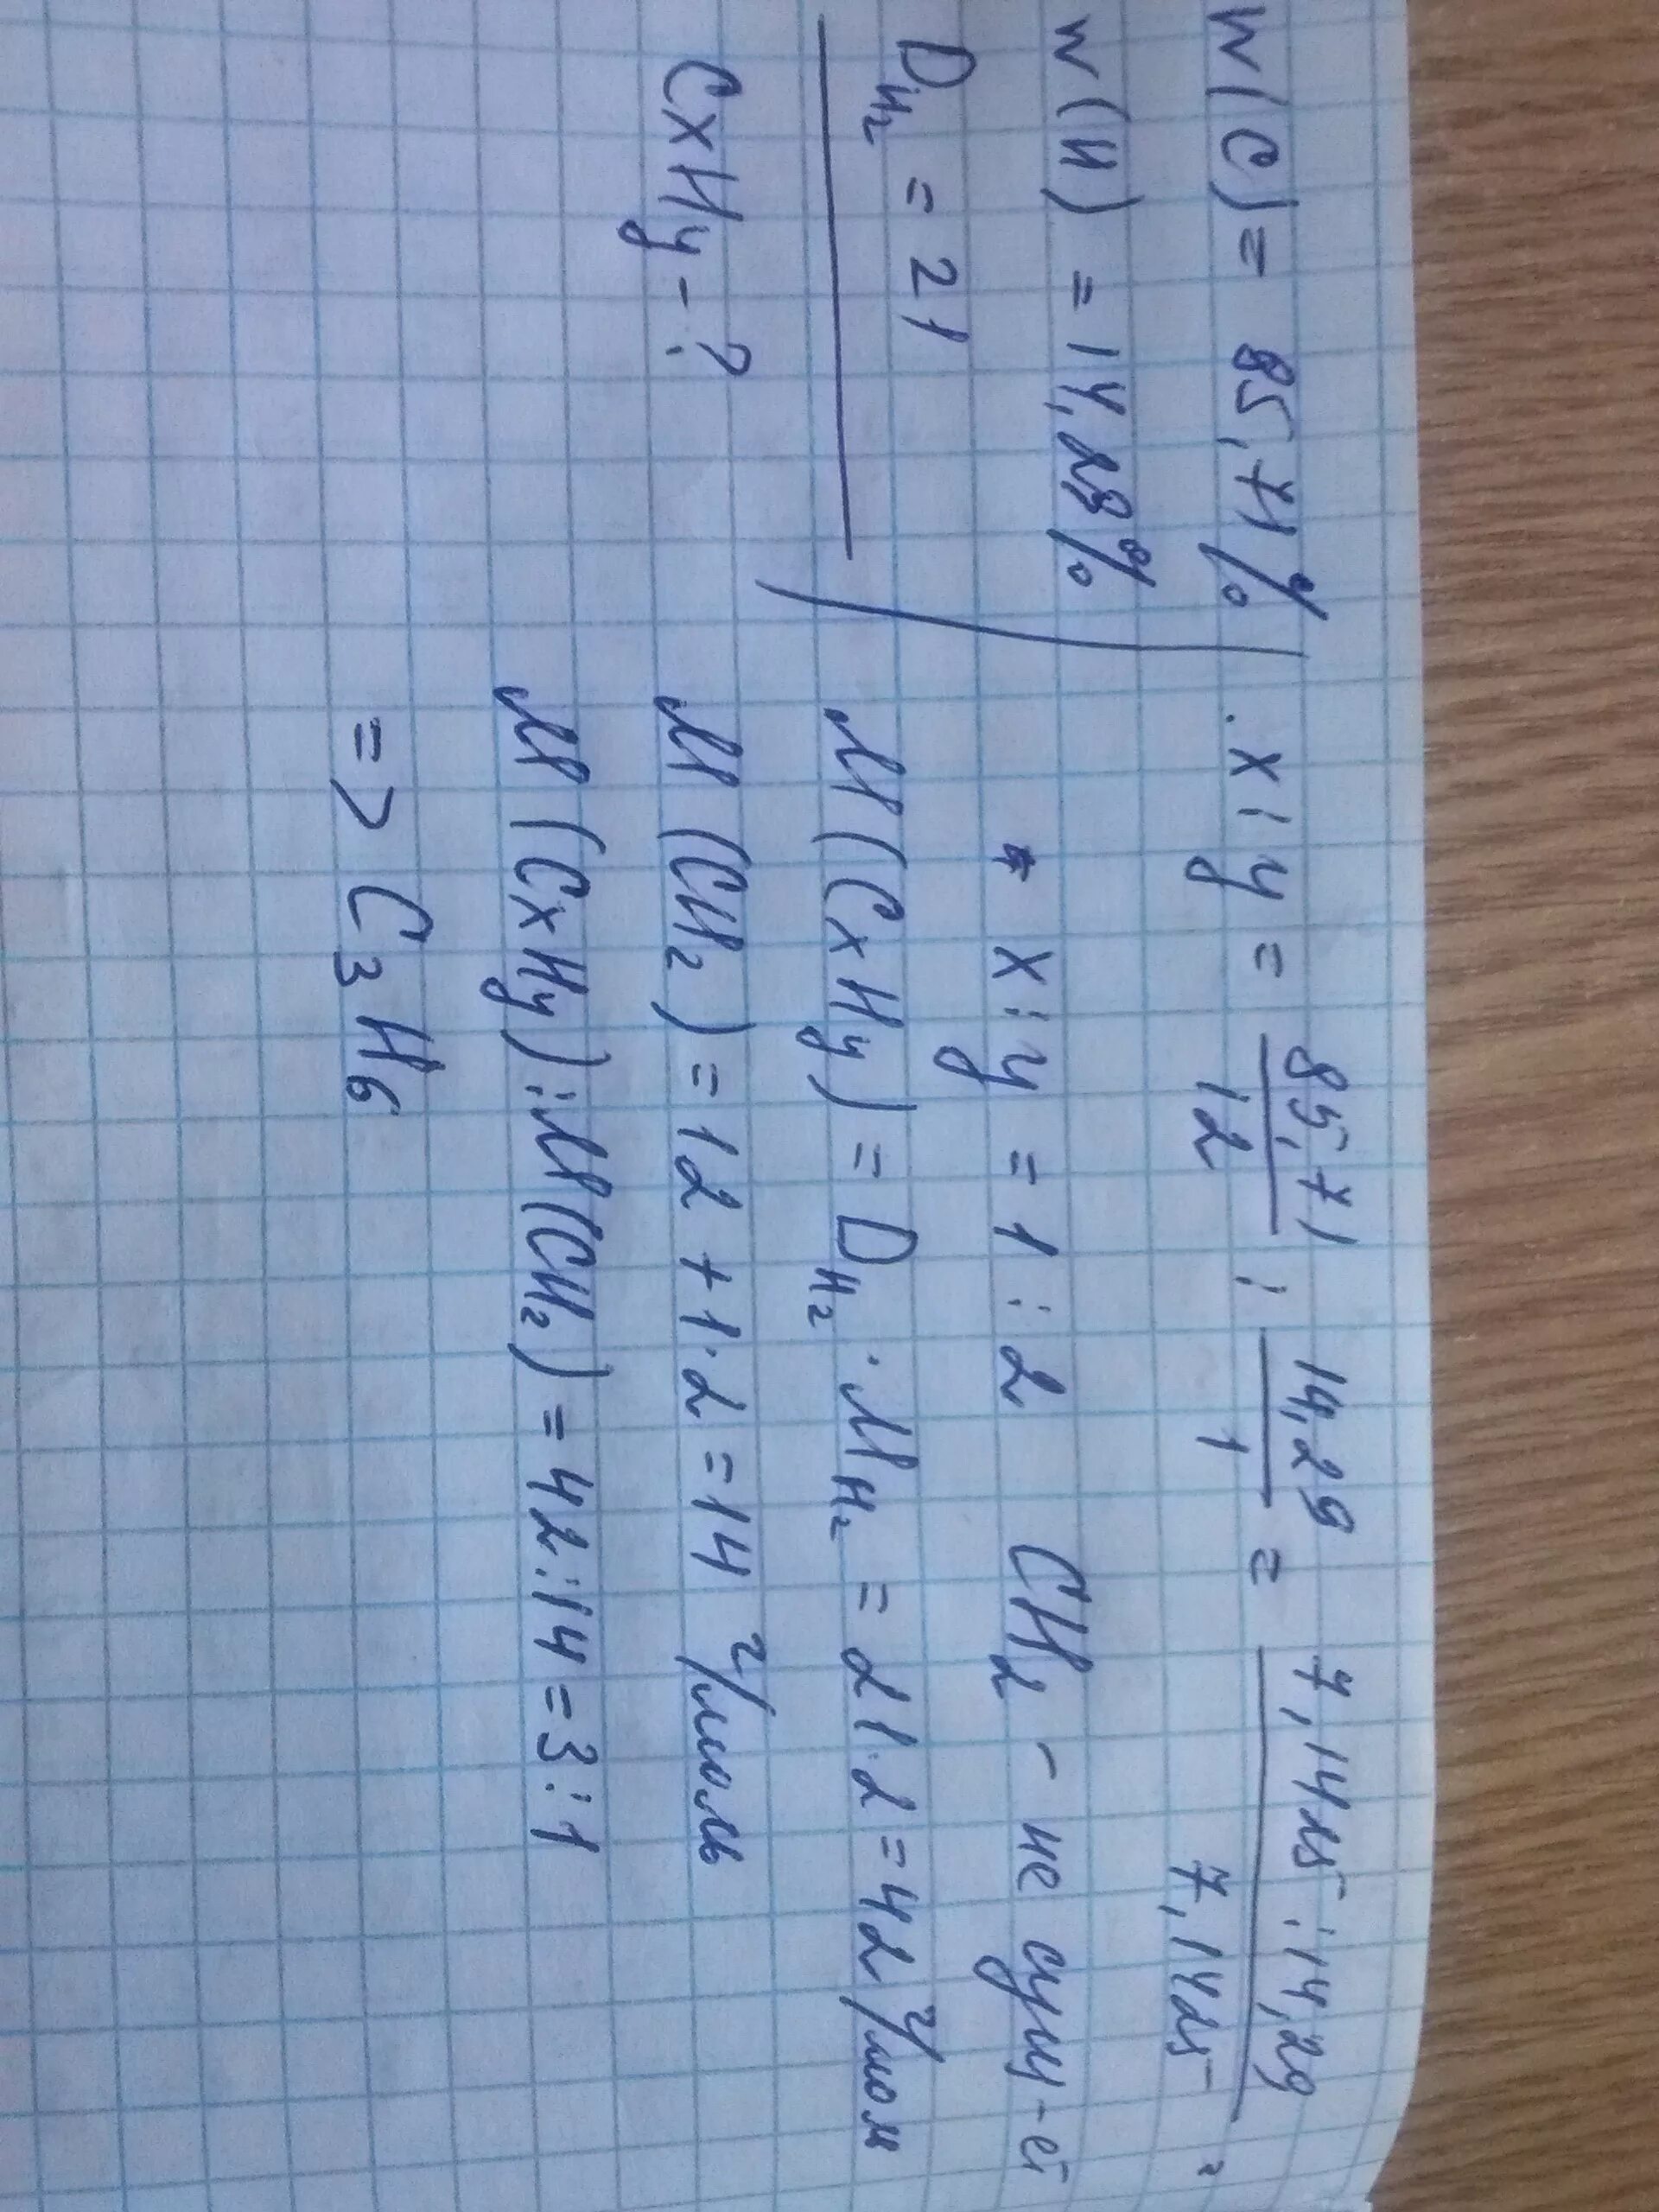 W(C) = 85,71%
W(H) = 14,28%
D H₂ = 21
CxHy - ?
. x : y = 85,71/12 : 14,29/1 = 7,1425 : 14,29 / 7,1425 =
* x : y = 1 : 2 CH₂ - не сущ-ет
M(CxHy) = D H₂ · M H₂ = 21·2 = 42 г/мол
M(CH₂) = 12 + 1·2 = 14 г/моль
M(CxHy) : M(CH₂) = 42 : 14 = 3 : 1
=> C₃H₆